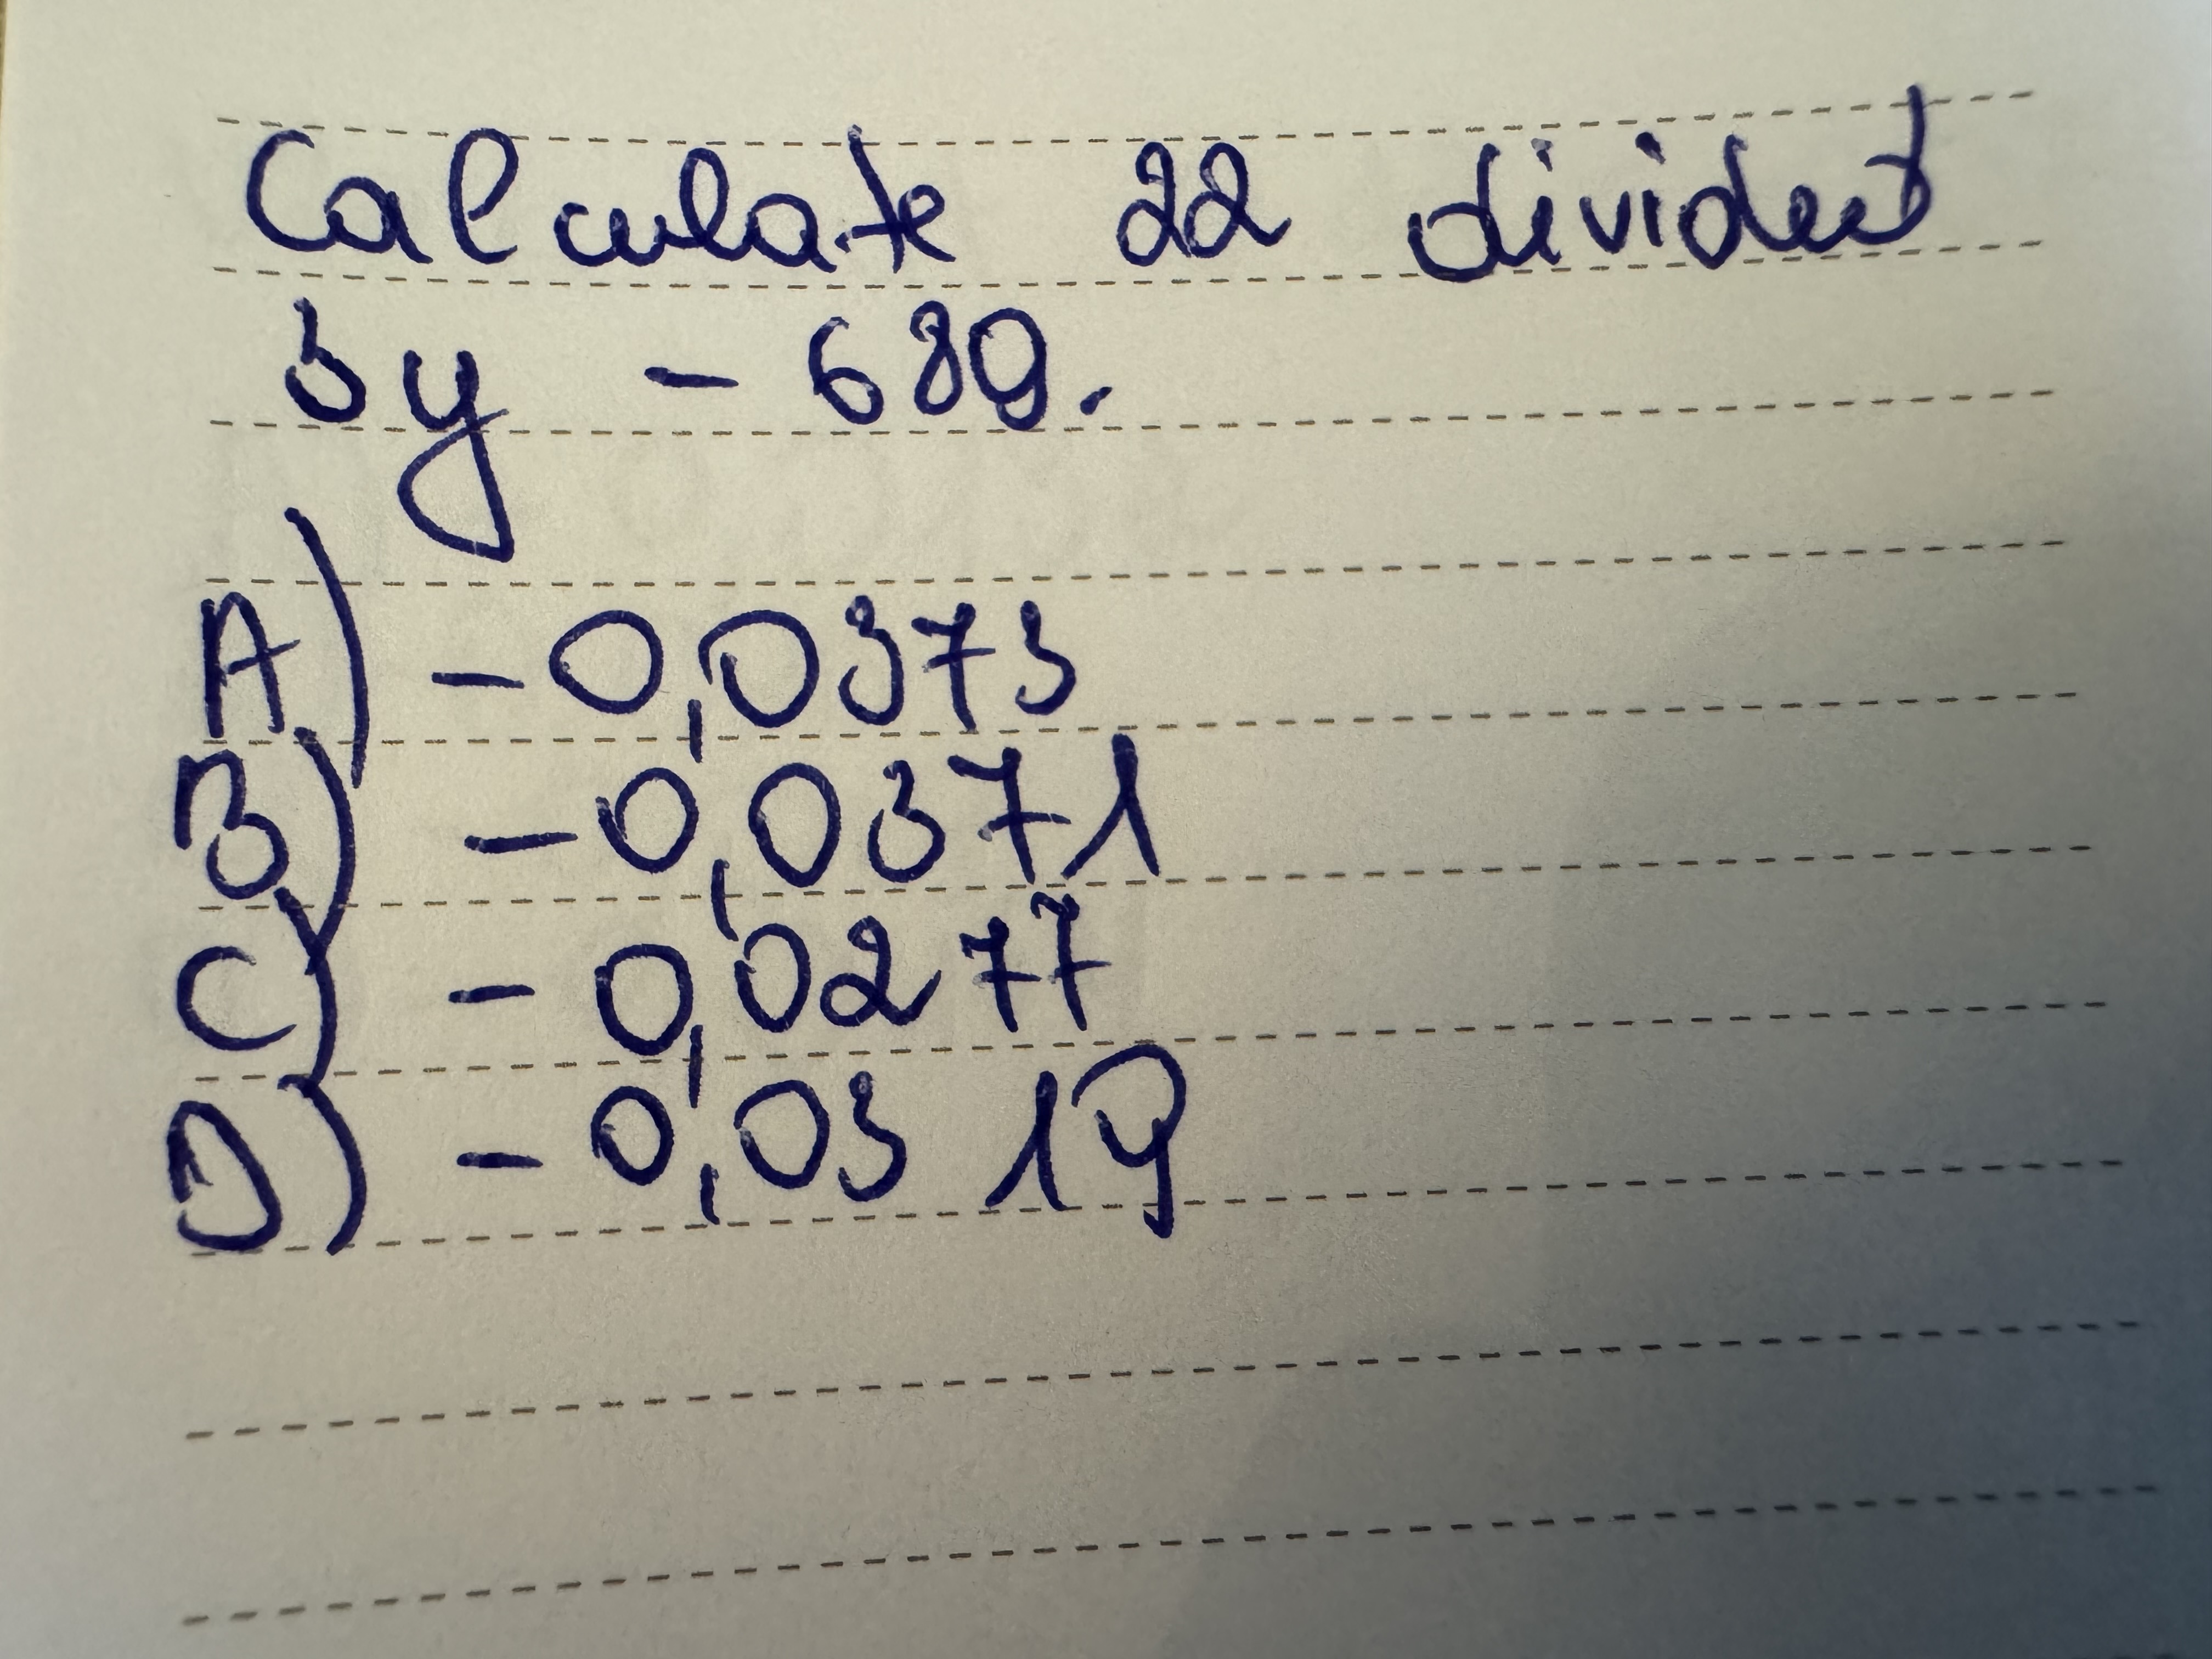 Calculate 22 divided
by - 689.
A) - 0,0373
B) - 0,0371
C) - 0,0277
D) - 0,0319